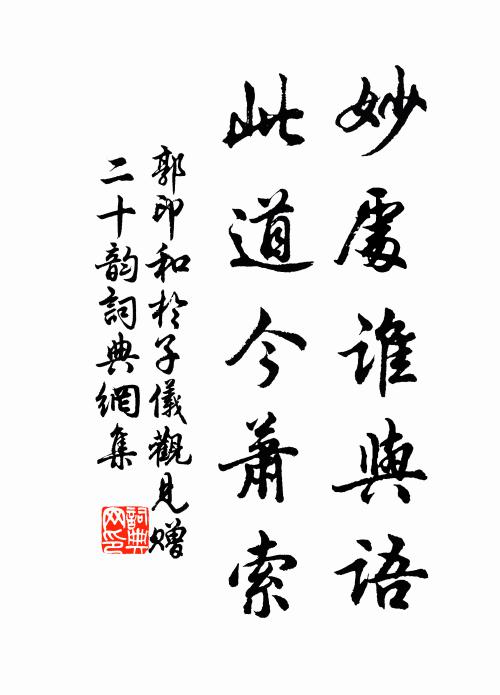 妙處誰與語
此道今蕭索
郭印和於子儀觀見贈
二十韵詞典網集
詞典
网印